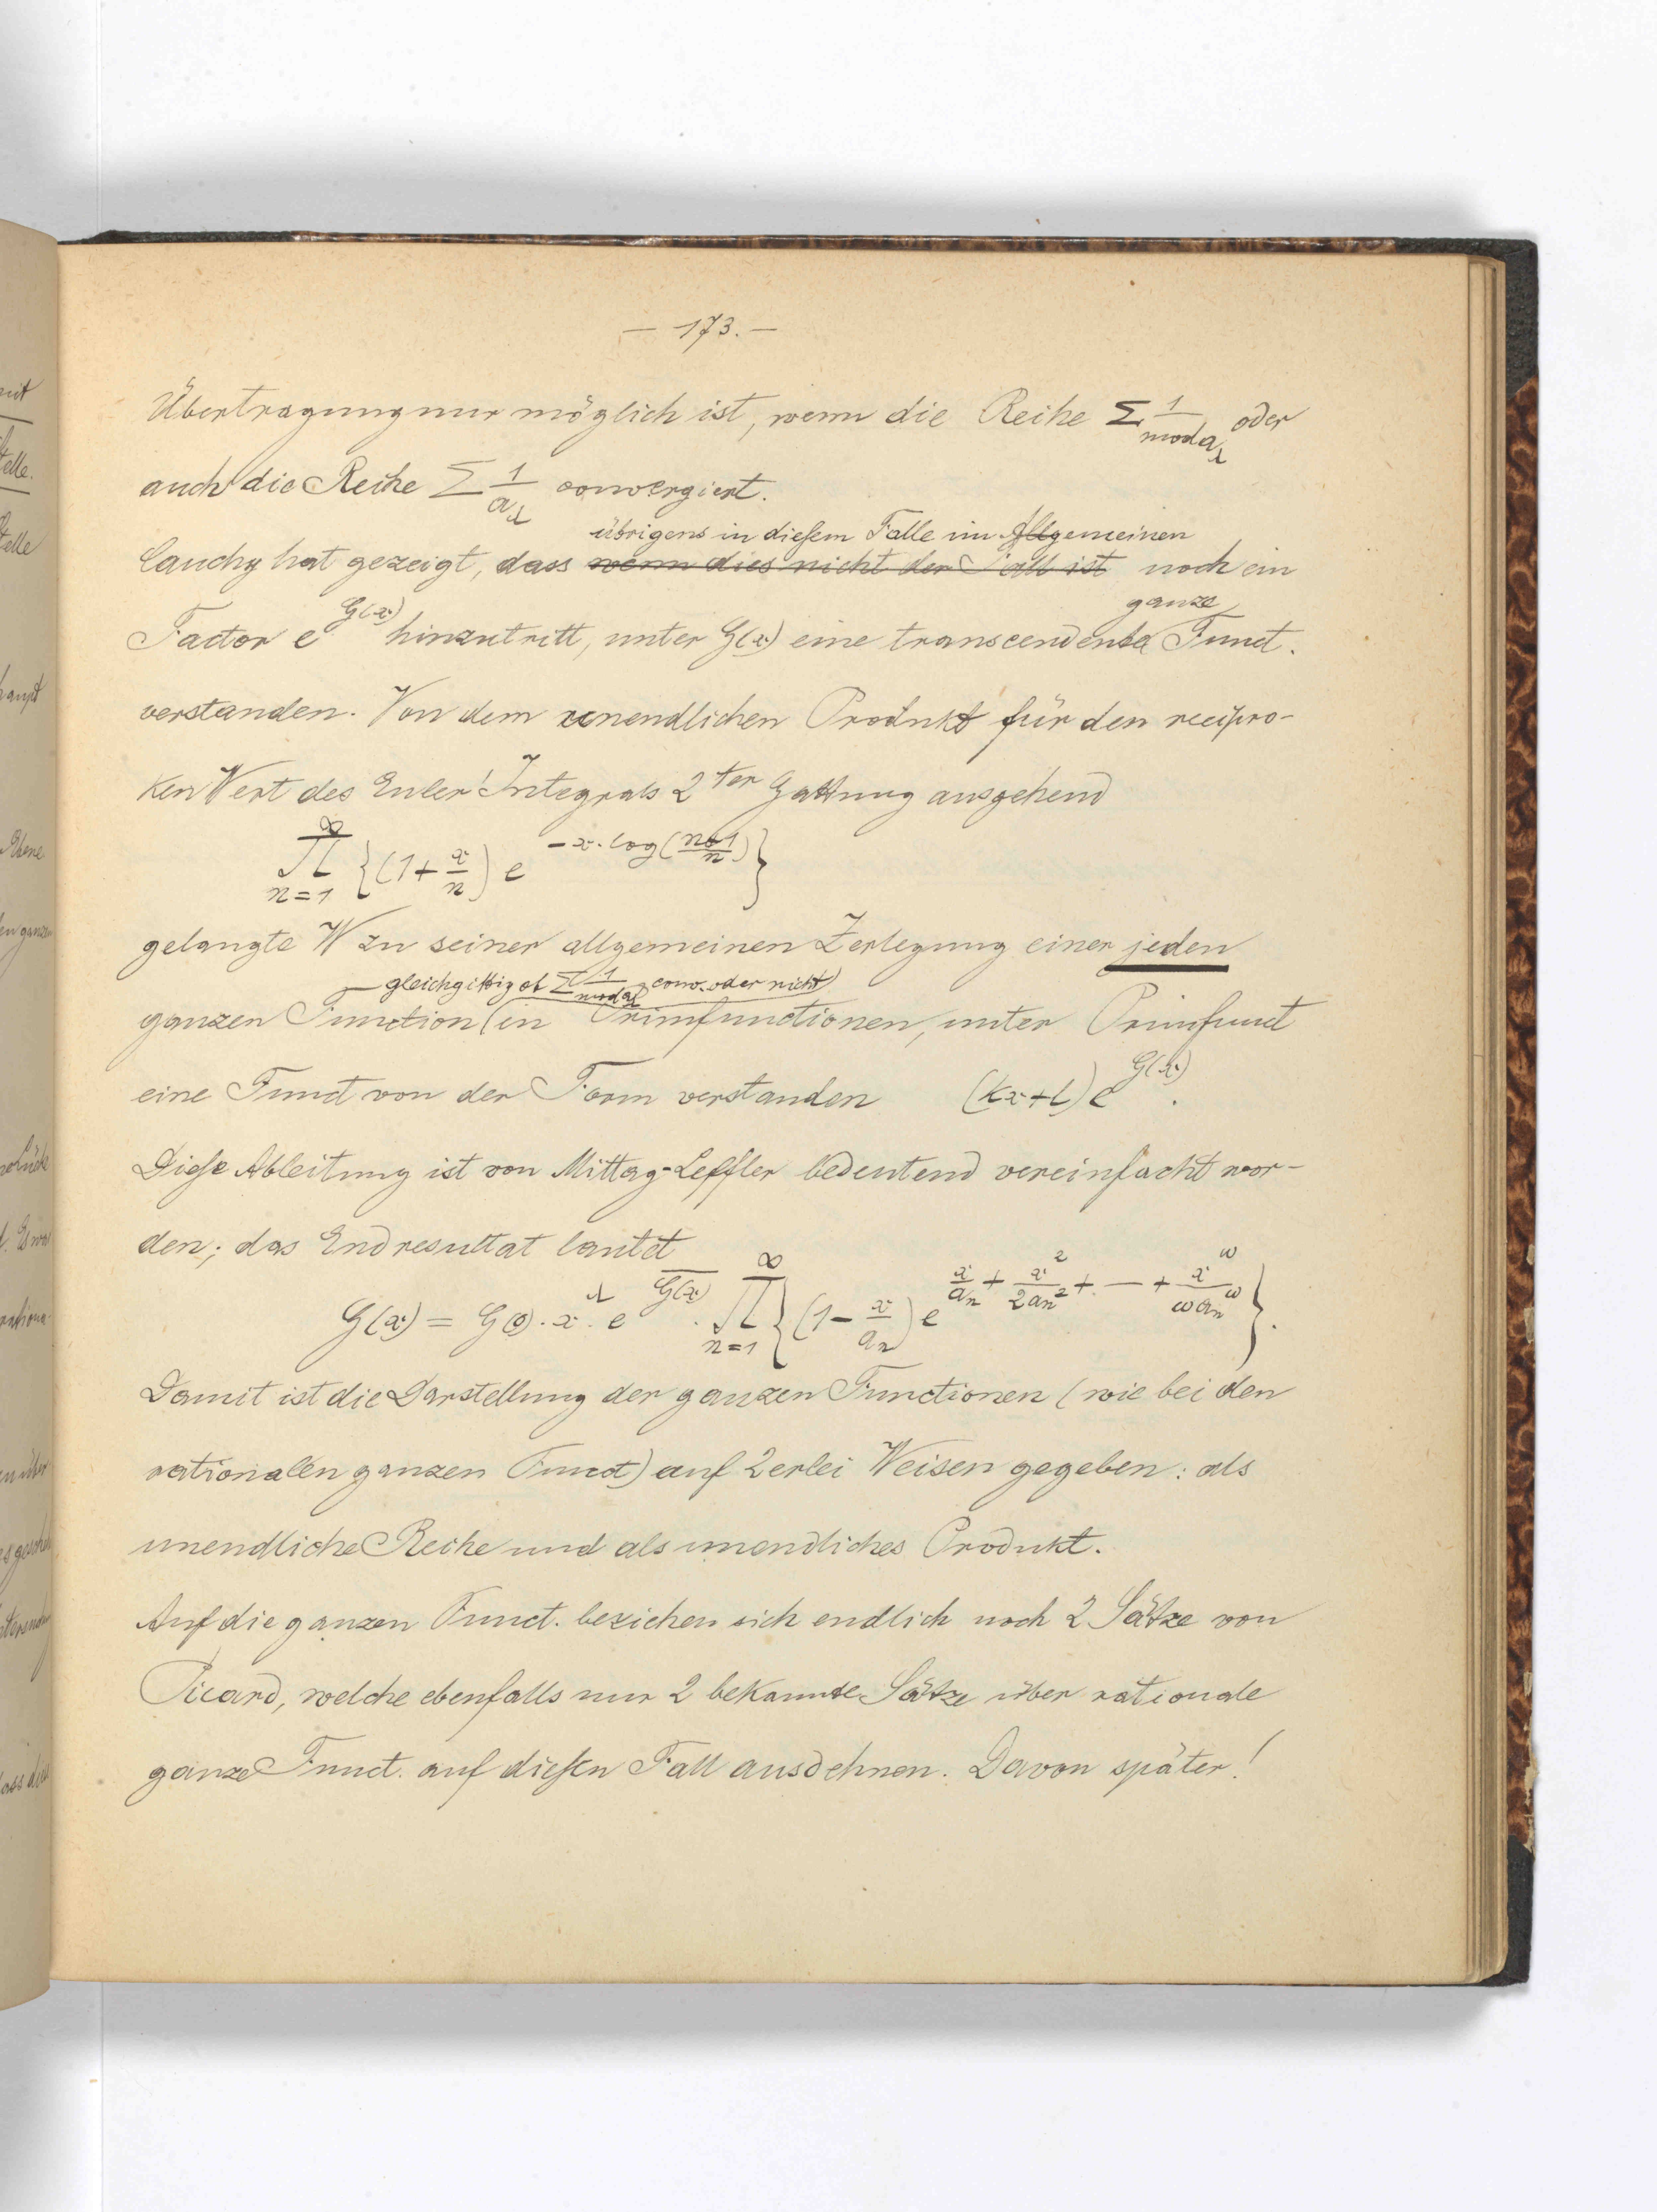 — 173. —
Übertragung nur möglich ist, wenn die Reihe Σ 1/mod a_λ oder
auch die Reihe Σ 1/a_λ convergiert.
übrigens in diesem Falle im Allgemeinen
Cauchy hat gezeigt, dass wenn dies nicht der Fall ist noch ein
ganze
Factor e^{G(x)} hinzutritt, unter G(x) eine transcendente Funct.
verstanden. Von dem unendlichen Produkt für den recipro-
ken Wert des Euler' Integrals 2^{ter} Gattung ausgehend
∏_{n=1}^{∞} {(1+x/n) e^{-x·log((n+1)/n)}}
gelangte W zu seiner allgemeinen Zerlegung einer jeden
gleichgiltig ob Σ 1/mod a_λ conv. oder nicht)
ganzen Function (in Primfunctionen, unter Primfunct
eine Funct von der Form verstanden (kx+l) e^{G(x)}.
Diese Ableitung ist von Mittag-Leffler bedeutend vereinfacht wor-
den; das Endresultat lautet
G(x) = G(0)·x^λ·e^{\overline{G(x)}}·∏_{n=1}^{∞} {(1-x/a_n) e^{x/a_n + x^2/2a_n^2 + — + x^ω/ωa_n^ω}}.
Damit ist die Darstellung der ganzen Functionen (wie bei den
rationalen ganzen Funct) auf 2erlei Weisen gegeben: als
unendliche Reihe und als unendliches Produkt.
Auf die ganzen Funct. beziehen sich endlich noch 2 Sätze von
Picard, welche ebenfalls nur 2 bekannte Sätze über rationale
ganze Funct. auf diesen Fall ausdehnen. Davon später!